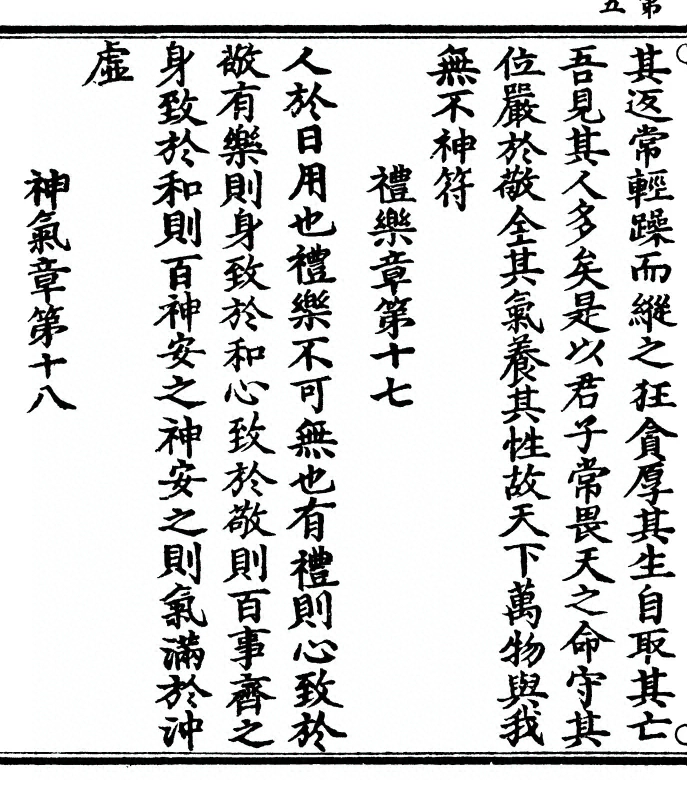 第
五
其返常輕躁而縱之狂貪厚其生自取其亡
吾見其人多矣是以君子常畏天之命守其
位嚴於敬全其氣養其性故天下萬物與我
無不神符
禮樂章第十七
人於日用也禮樂不可無也有禮則心致於
敬有樂則身致於和心致於敬則百事齊之
身致於和則百神安之神安之則氣滿於沖
虛
神氣章第十八